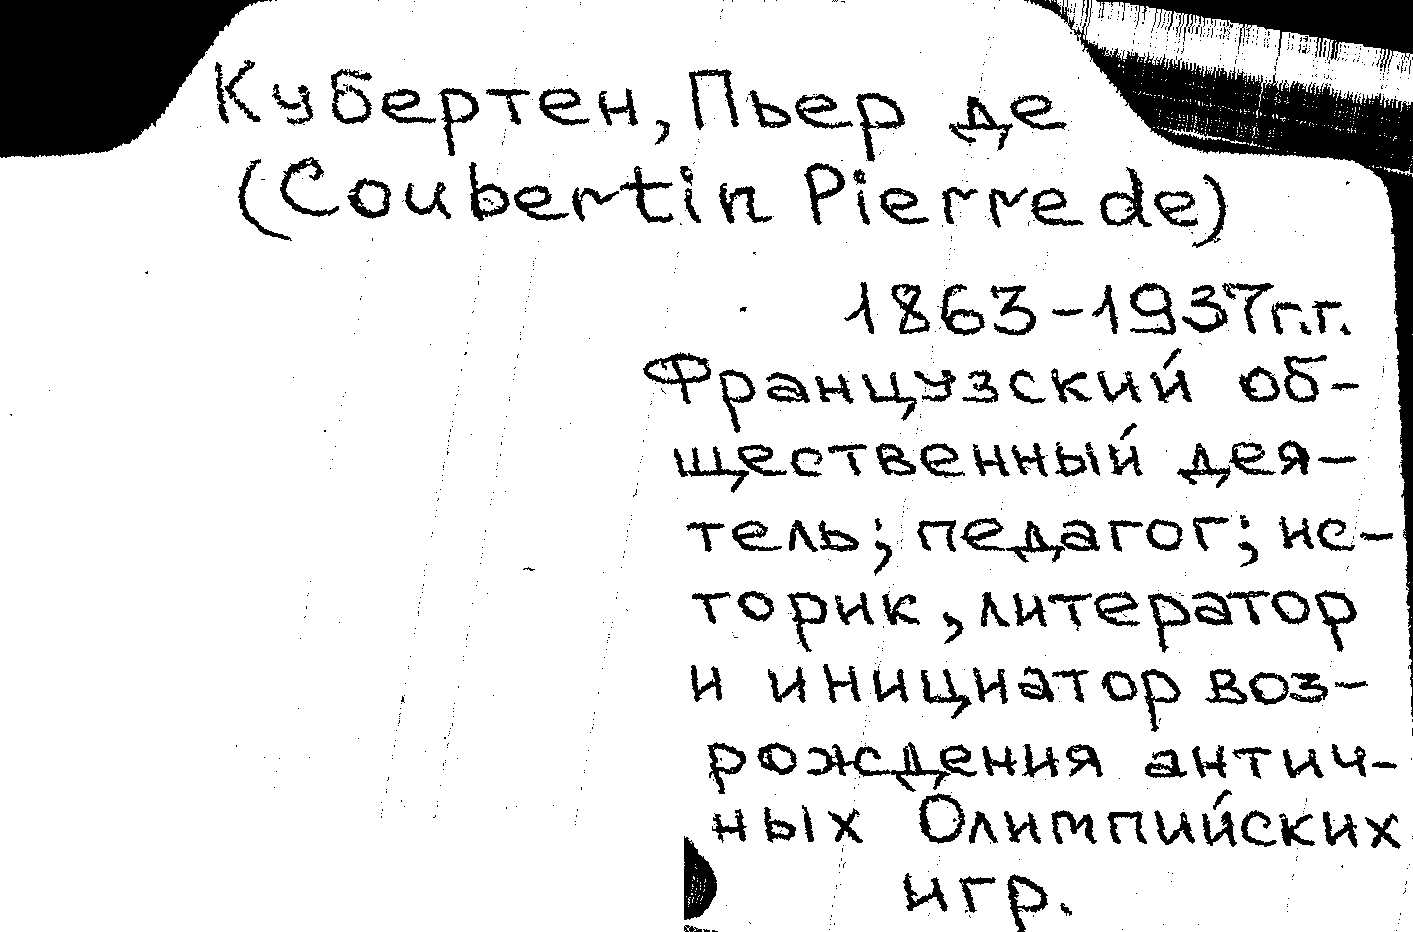 Кубертен, Пьер де
(Coubertin Pierre de)
1863-1937г.г.
Французский об-
щественный дея-
тель; педагог; ис-
торик, литератор
и инициатор воз-
рождения антич-
ных Олимпийских
игр.